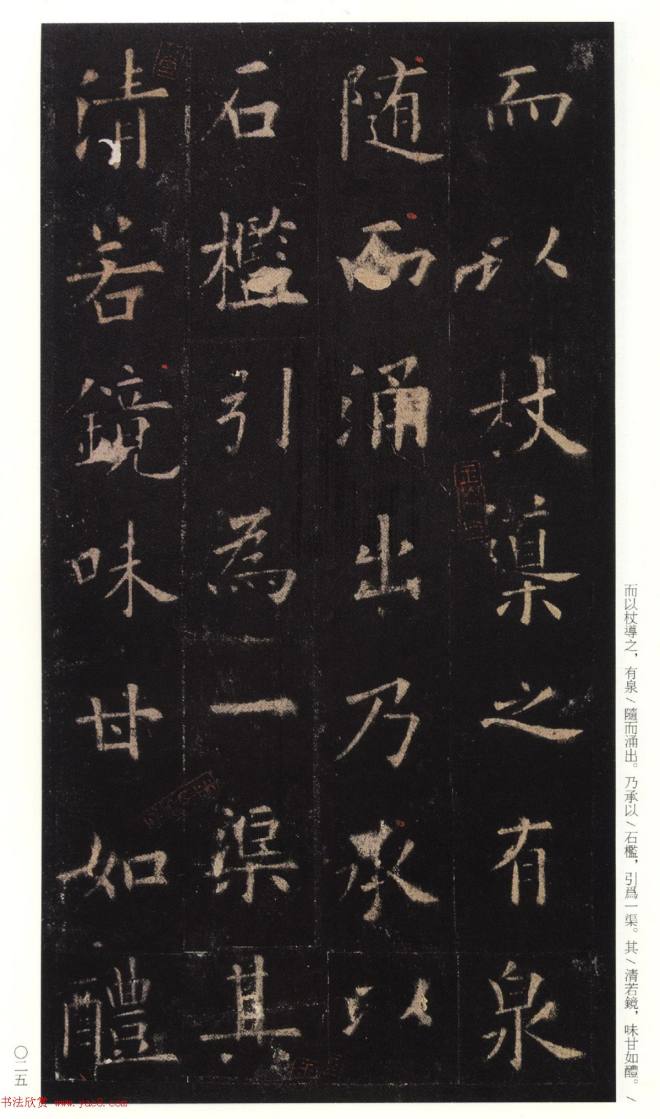 而以杖渠之有泉
随而涌出乃承以
石檻引為一渠其
清若鏡味甘如醴
而以杖導之，有泉/隨而涌出。乃承以/石檻，引爲一渠。其/清若鏡，味甘如醴。/
〇二五
书法欣赏 www.yac8.com